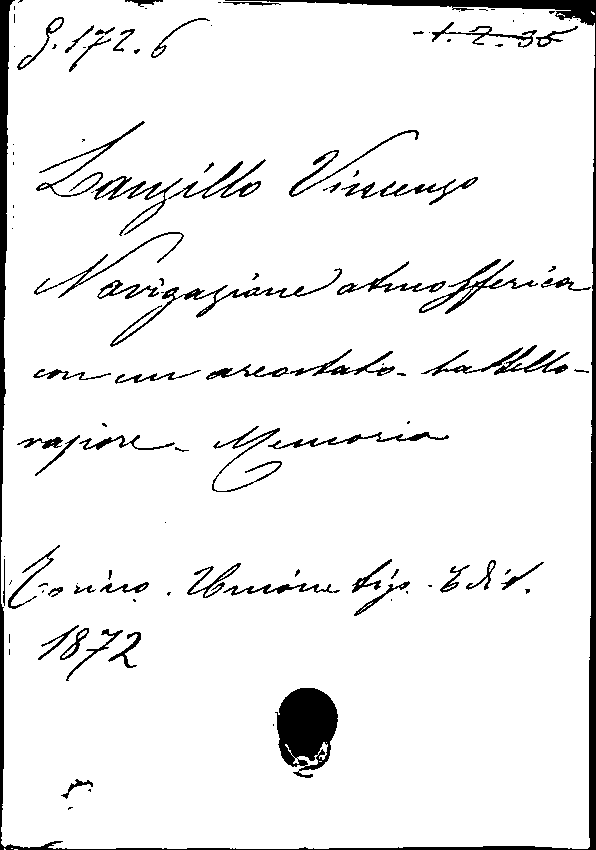 g.172.6
1.2.35
Lanzillo Vincenzo
Navigazione atmosferica
con un areostato-battello-
vapore - Memoria
Torino. Unione tip. Edit.
1872